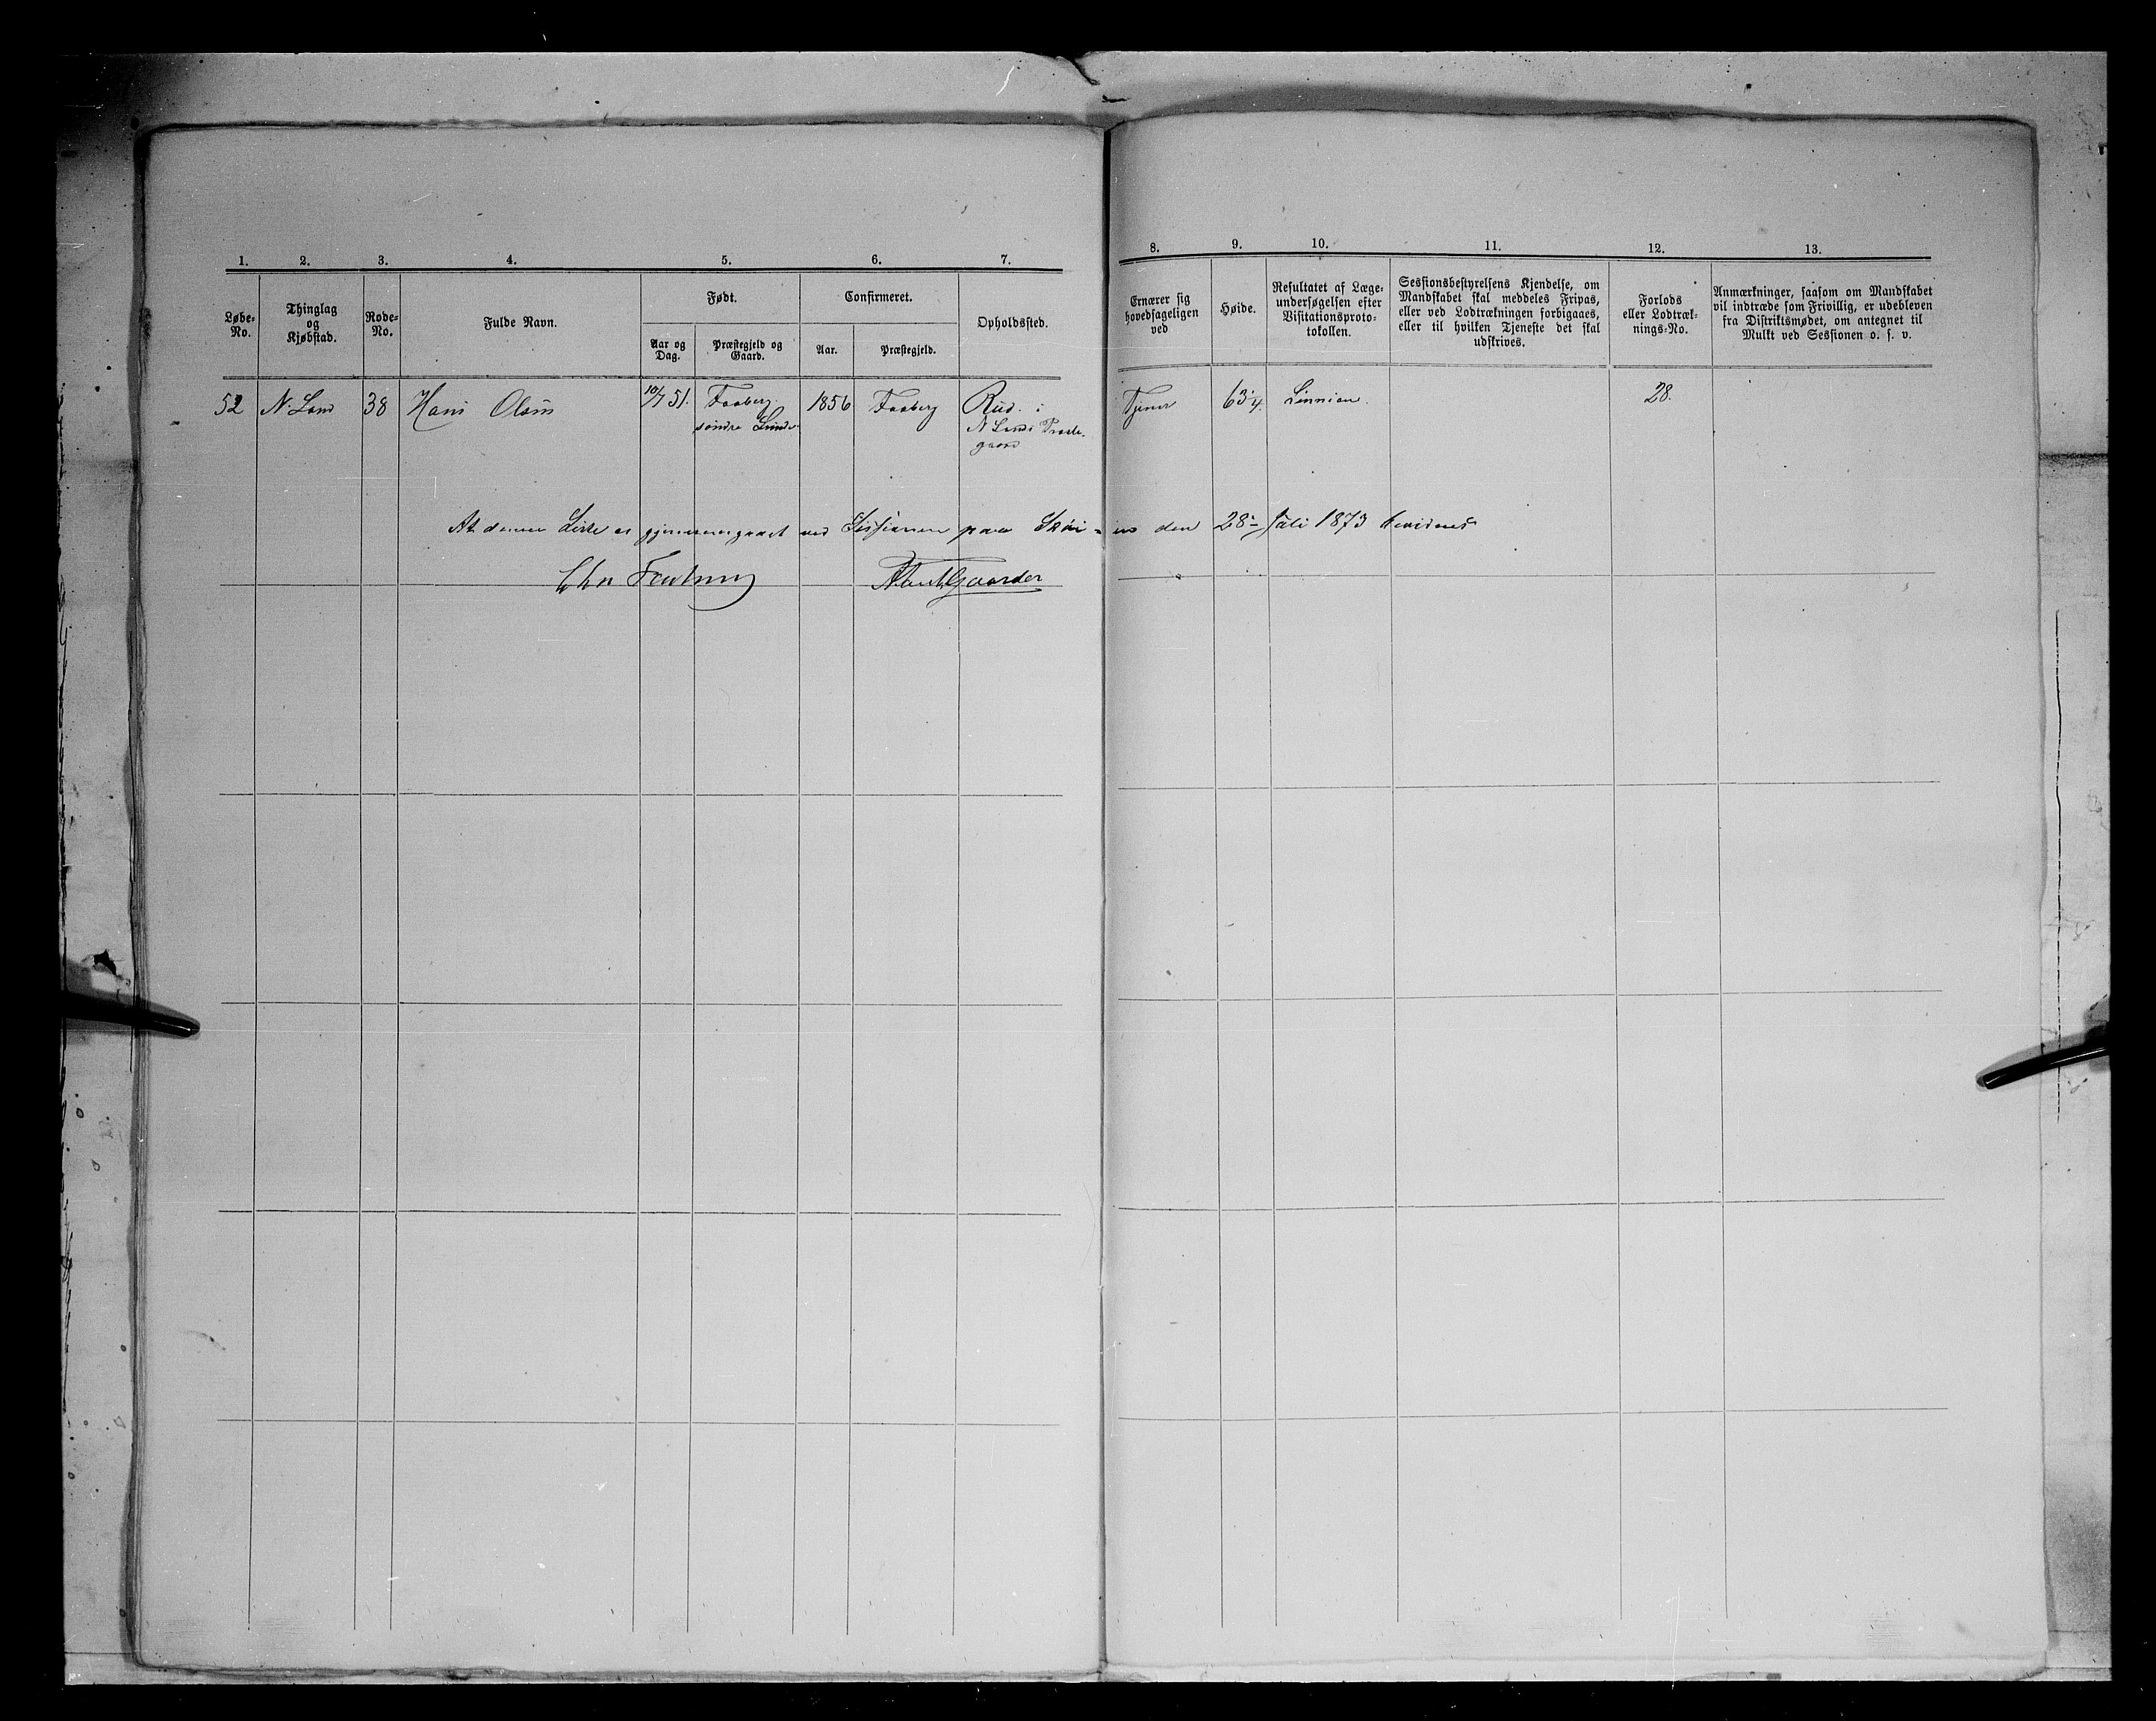 1. 2. 3. 4. 5. 6. 7. 8. 9. 10. 11. 12. 13.
Løbe-
No.
Thinglag
og
Kjøbstad.
Rode-
No.
Fulde Navn.
Født.
Aar og
Dag.
Præstegjeld og
Gaard.
Confirmeret.
Aar.
Præstegjeld.
Opholdssted.
Ernærer sig
hovedsageligen
ved
Høide.
Resultatet af Læge-
undersøgelsen efter
Visitationsproto-
tokollen.
Sessionsbestyrelsens Kjendelse, om
Mandskabet skal meddeles Fripas,
eller ved Lodtrækningen forbigaaes,
eller til hvilken Tjeneste det skal
udskrives.
Forlods
eller Lodtræk-
nings-No.
Anmærkninger, saasom om Mandskabet
vil indtræde som Frivillig, er udebleven
fra Distriktsmødet, om antegnet til
Mulkt ved Sessionen o. s. v.
52 N Land 38 Hans Olsen 10/7 51. Faaberg 1856 Faaberg Rud i Tjener 63 1/4. Linnien. 28.
søndre N Lands Præste-
gaard
At denne Liste er gjennemgaaet ved Sessionen paa den 28de Juli 1873 bevidnes
Gaarder